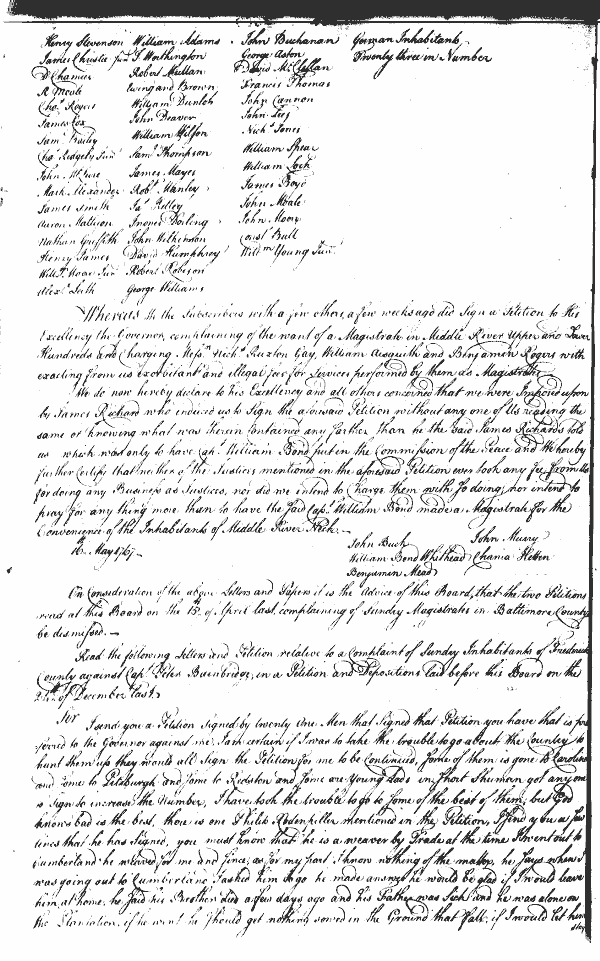 Henry Stevenson William Adams John Buchanan German Inhabitants
James Christie Junr T Worthington George Aston Twenty three in Number
D Chamier Robert Mullan David McClellan
R Moale Ewing and Brown Francis Thomas
Chos. Rogers William Dunlop John Cannon
James Cox John Deaver John Lees
Saml. Bailey William Wilson Nichs. Jones
Chos. Ridgely Junr Saml. Thompson William Spear
John McLure James Mayes William Lock
Mark Alexander Robt. Manley James Boyd
James Smith Jas. Kelley John Moale
Aaron Mattison John Moore
Nathan Griffith John Wilkinson Const. Bull
Henry James David Humphrey Wild Young Junr.
Will Moore Junr Robert Robeson
Alexr. Leith George Williams
Whereas We the Subscribers with a few others, a few weeks ago did Sign a Petition to His
Excellency the Governor, complaining of the want of a Magistrate in Middle River Upper and Lower
Hundreds and Charging Messrs. Nichs. Ruxton Gay, William Aisquith and Benjamin Rogers with
exacting from us Exorbitant and illegal fees for Services performed by them as Magistrates
We do now hereby declare to his Excellency and all others concerned that we were Imposed upon
by James Richard who induced us to Sign the aforesaid Petition without any one of Us reading the
same or knowing what was therein contained any farther than he the said James Richards told
us which was only to have Capt. William Bond put in the Commission of the Peace and We hereby
further Certify that neither of the Justices mentioned in the aforesaid Petition ever took any fee from Us
for doing any Business as Justices, nor did we intend to Charge them with so doing, nor intend to
pray for any thing more than to have the said Capt. William Bond made a Magistrate for the
Convenience of the Inhabitants of Middle River Neck.
16th. May 1767 John Buck John Murry
William Bond Whithead
Benjamin Mead
On Consideration of the above Letters and Papers it is the Advice of this Board, that the two Petitions
read at this Board on the 15th. of April last, complaining of Sundry Magistrates in Baltimore County
be dismissed.
Read the following Letters and Petition relative to a Complaint of Sundry Inhabitants of Frederick
County against Capt. Peter Bainbridge, in a Petition and Depositions laid before this Board on the
of December last.
Sir
I send you a Petition Signed by twenty One Men that Signed that Petition you have that is pre
ferred to the Governor against me, I am certain if I was to take the trouble to go about the Country to
hunt them up they would all Sign the Petition for me to be Continued, Some of them is gone to Carolina
and some to Pittsburgh and some to Redston and some are young Lads in short Shuman got any one
to Sign to increase the Number, I have took the trouble to go to Some of the best of them, but God
knows bad is the best, there is one Philip Rodenpiller mentioned in the Petition, I send you a few
lines that he has Signed, you must know that he is a weaver by Trade at the time I went out to
Cumberland he weaved for me and since, as for my part I know nothing of the matter, he says when I
was going out to Cumberland I asked him to go he made answer he would be glad if I would leave
him at home, he said his Brother died a few days ago and his Father was Sick and he was alone on
the Plantation, if he went he should get nothing sowed in the Ground that Fall, if I would let him
stay